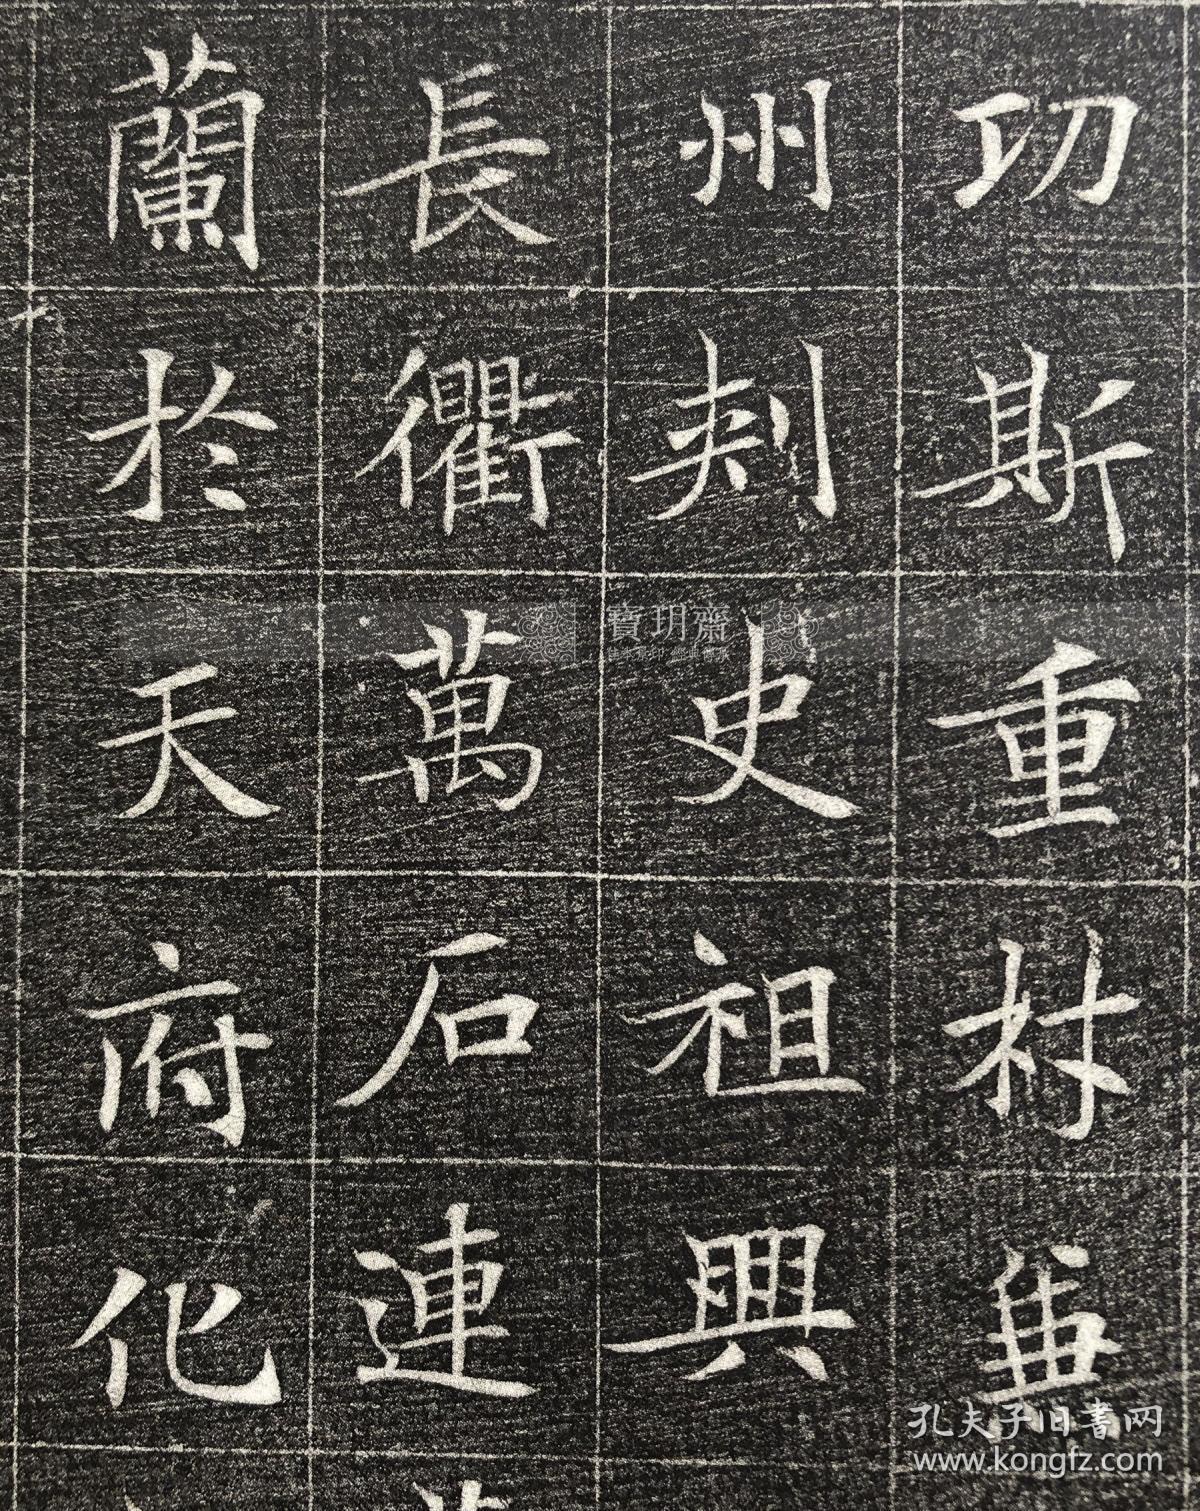 切斯重材兼
州刺史祖興
長衢萬石連
蘭於天府化
寶玥齋
孔夫子旧書网
www.kongfz.com